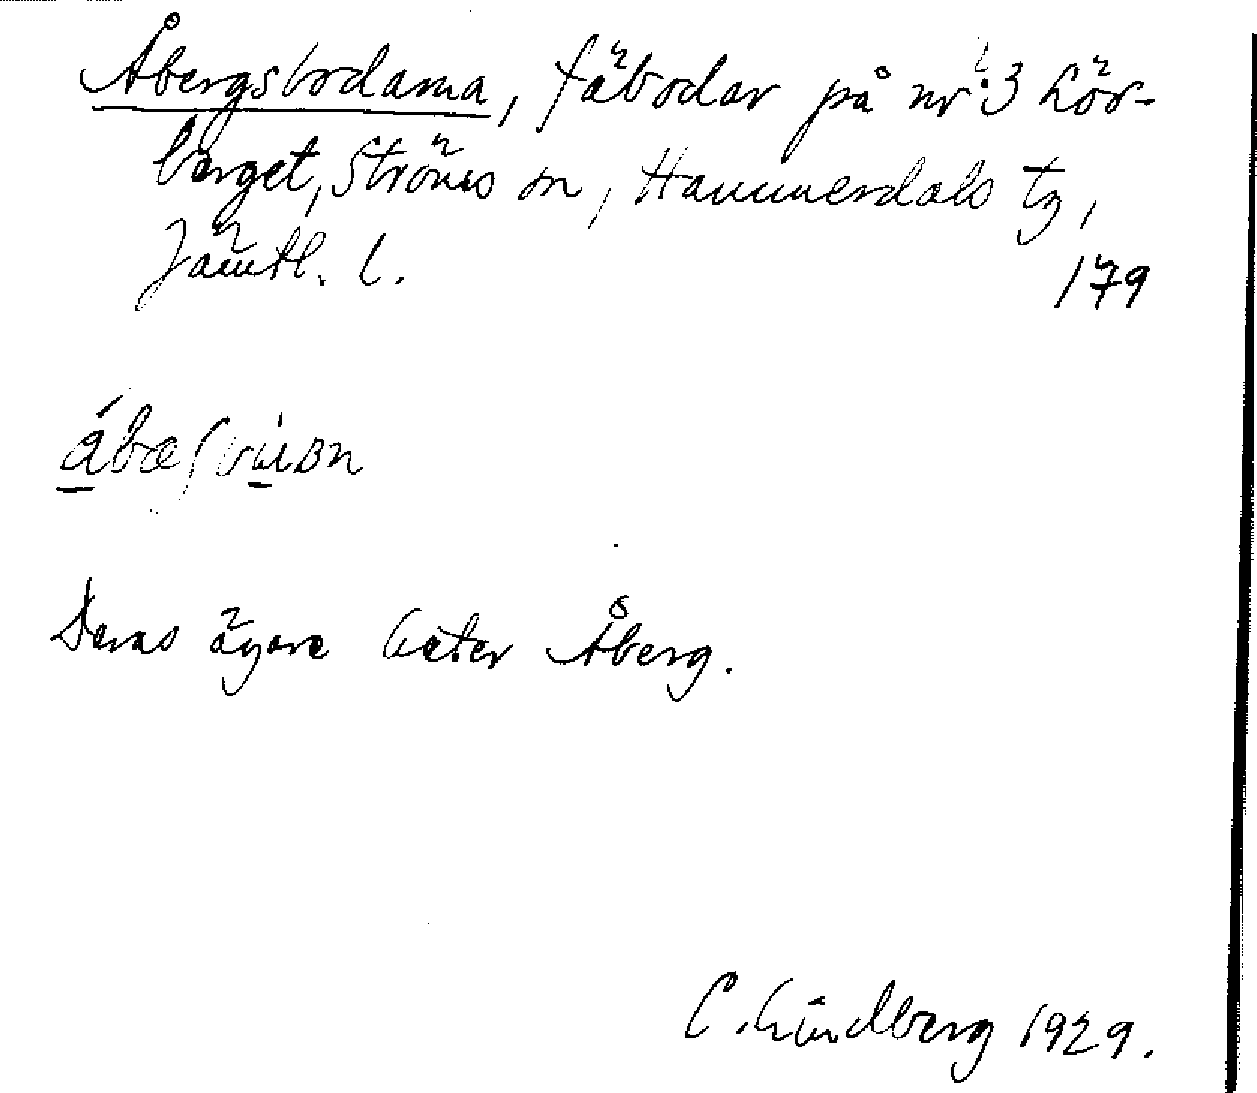 Åbergsbodarna, fäbodar på nr 3 Lör-
berget, Ströms sn, Hammerdals tg,
Jämtl. l.
179
Deras ägare heter Åberg.
C. Lindberg 1929.